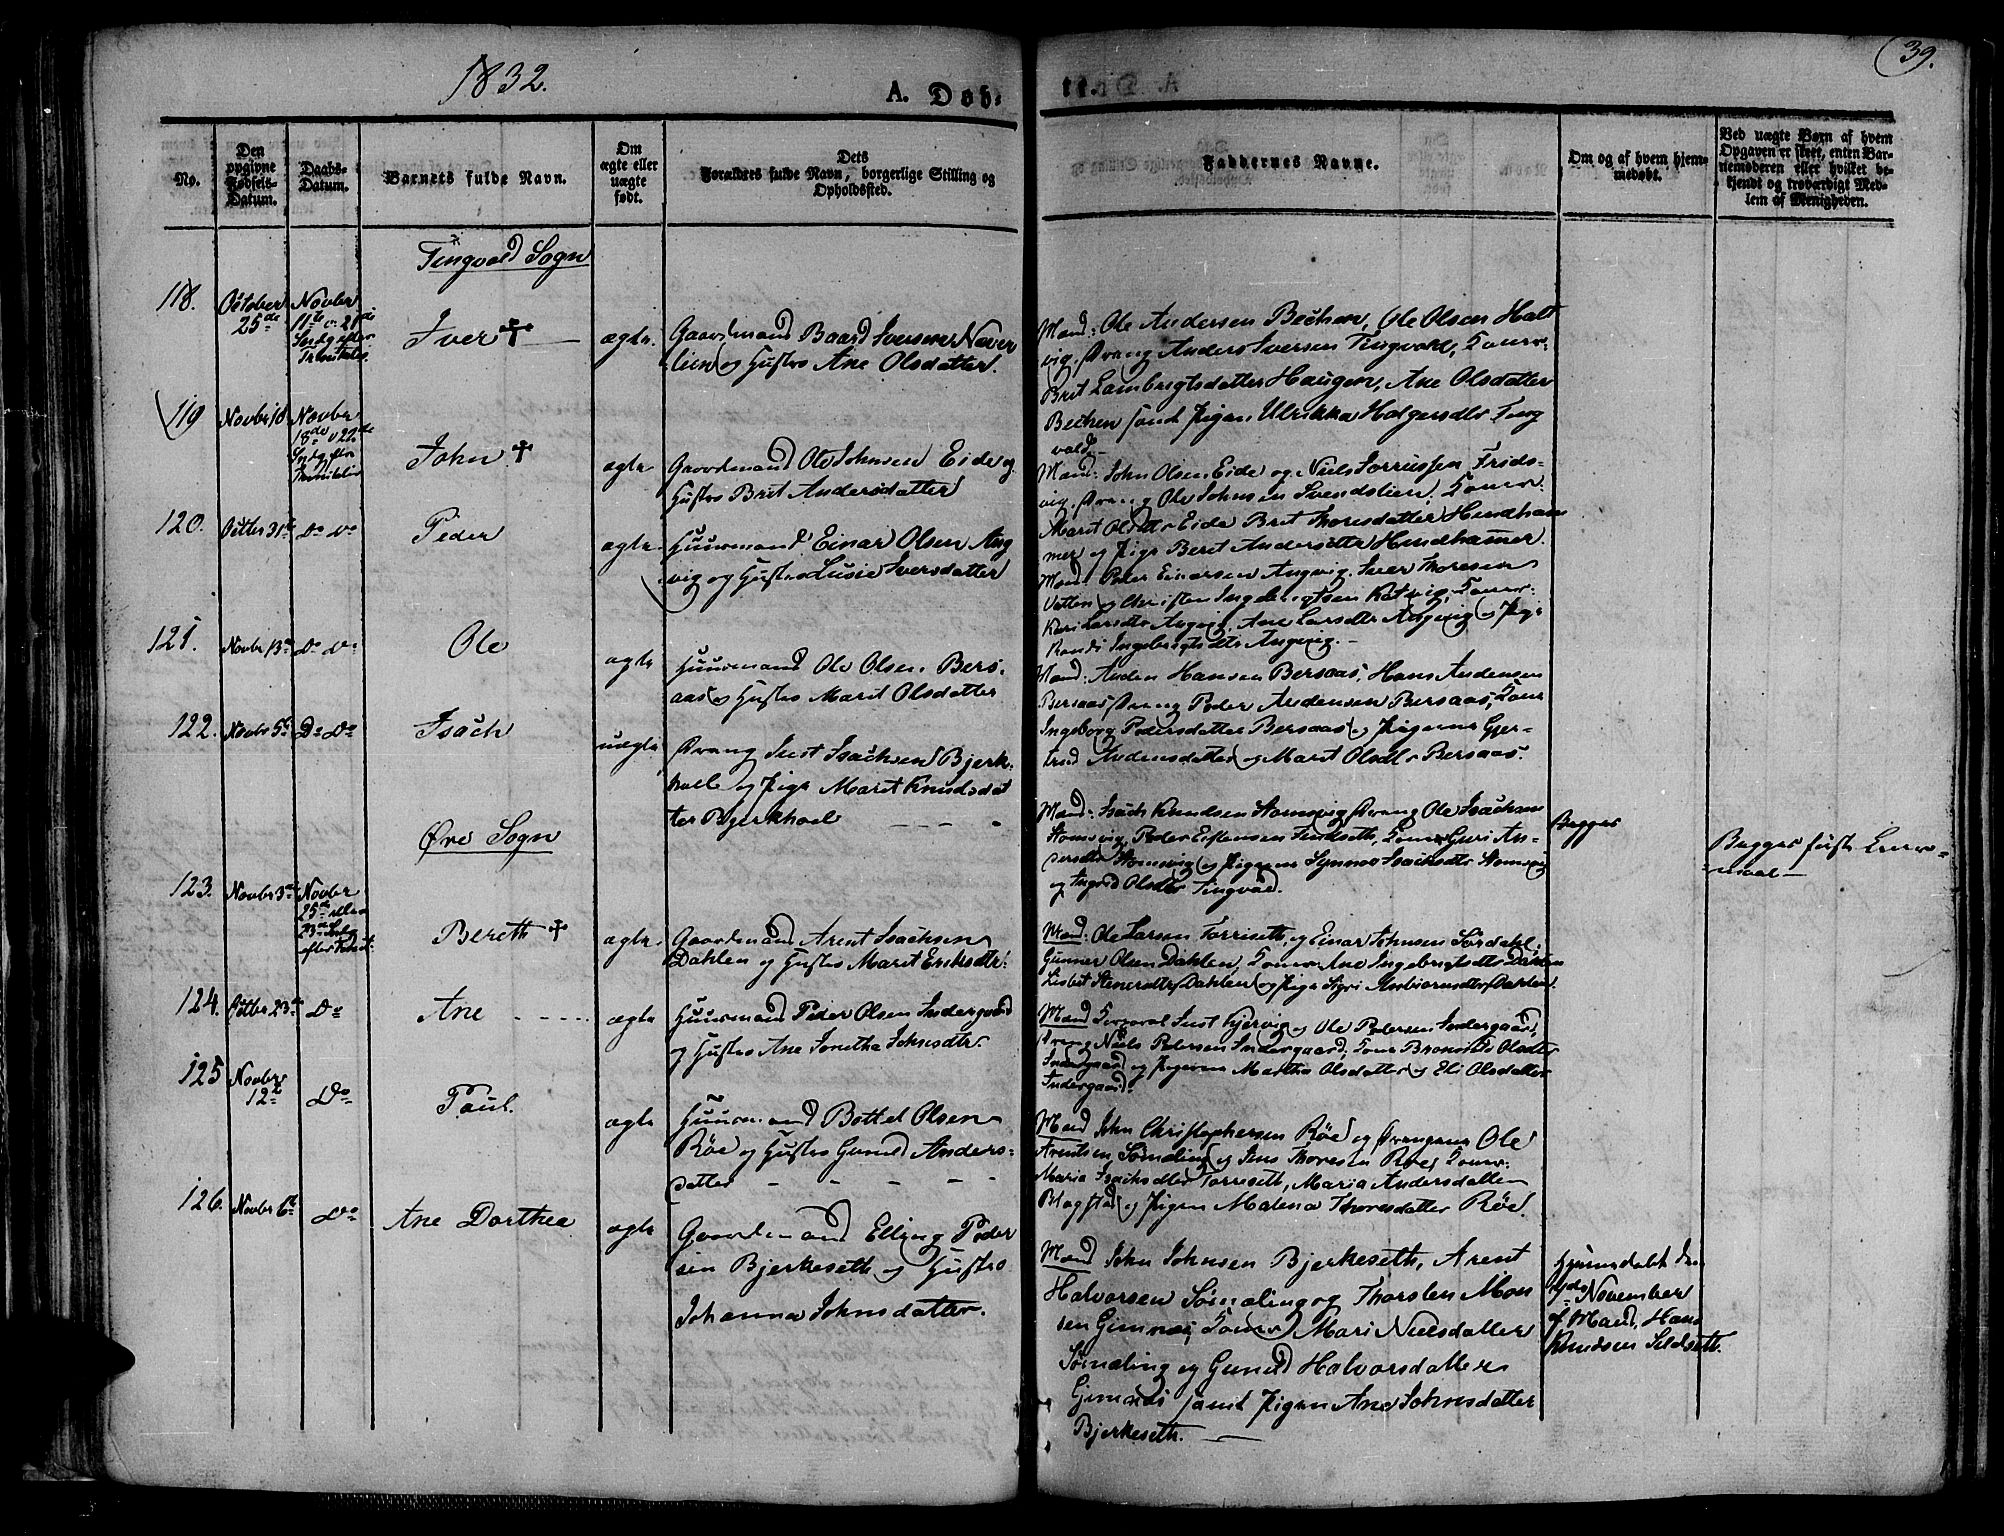 1832.
A. Døb-
39.
No.
Den opgivne Fødsels-Datum.
Daabs-Datum.
Barnets fulde Navn.
Om ægte eller uægte født.
Dets Forældres fulde Navn, borgerlige Stilling og Opholdssted.
Faddernes Navne.
Om og af hvem hjemmedøbt.
Ved uægte Børn af hvem Opgaven er skeet, enten Barnemoderen eller hvilket bekjendt og troværdigt Medlem af Menigheden.
Tingvold Sogn
118.
October 25de
Novbr 11te
Iver
ægte
Gaardmand Baard Iversen Naver
lien og Hustro Ane Olsdatter.
Mænd: Ole Andersen Bechen, Ole Olsen Halt
vig. Dreng Anders Iversen Tingvold, Koner:
Brit Lambregtsdatter Haugen, Ane Olsdatter
Bechen samt Pigen Ulrikka Holgersdtr Ting
vold.
119
Novbr 18
Novbr 18de
John
ægte
Gaardmand Ole Johnsen Eide og
Hustro Brit Andersdatter
Mænd: John Olsen Eide og Niels Frids-
vig. Dreng Ole Johnsen Svendslien. Koner:
Marit Olsdtr Eide Brit Thoresdatter Hindham
mer og Pige Berit Andersdtr Hindhammer.
120.
Octbr 31te
Do Do
Peder
ægte
Huusmand Einar Olsen Ang
vig og Hustro Lusie Iversdatter
Mænd: Peder Einersen Angvig. Iver Thoresen
Vatten og Christen Ingebrigtsen Koner:
Kari Larsdtr Angvig, Ane Larsdtr Angvig og Pige
Randi Ingebrigtsdtr Angvig.
121.
Novbr 13de
Do Do
Ole
ægte
Huusmand Ole Olsen Bers-
aas og Hustro Marit Olsdatter
Mænd: Anden Hansen Bersaas, Hans Andensen
Bersaas, Dreng Peder Andensen Bersaas, Kone
Ingeborg Pedersdatter Bersaas og Pigerne Gjer-
trud Andensdatter og Marit Olsdtr Bersaas.
122.
Novbr 5te
Do Do
Isach
uægte
Dreng Just Isachsen Bjerk-
hoel og Pige Marit Knudsdat
ter Bjerkhoel
Mænd: Isach Knudsen Stomsvig, Dreng Ole Isachsen
Stomsvig, Peder Eistensen Koner Guri An-
dersdtr Stomsvig og Pigerne Synnøv Isachsdtr Stomsvig
og Ingred Olsdtr Tingvold.
Begges
Begges første Leier-
maal
Øre Sogn
123.
Novbr 3de
Novbr 25de
Bereth
ægte
Gaardmand Arent Isachsen
Dahlen og Hustro Marit Eriksdtr.
Mænd: Ole Larsen Torriseth, og Einar Johnsen Sørdahl,
Gunner Olsen Dahlen, Koner Ane Ingebrigtsdtr Dahlen
Lisbet Stenersdtr Dahlen og Pige Sigri Dahlen.
124.
Octbr 23de
Do
Ane
ægte
Huusmand Peder Olsen Indergaard
og Hustro Ane Johnsdtr.
Mænd Just Kjørvig og Ole Pedersen Indergaard,
Dreng Niels Pedersen Indergaard. Kone Olsdtr
Indergaard og Pigerne Martha Olsdatter og Eli Olsdatter
Indergaard.
125
Novbr 12te
Do
Paul.
ægte
Huusmand Bottel Olsen
Røe og Hustro Gunild Anders-
datter
Mænd John Christophersen Røe og Drengene Ole
Arentsen Sømeling og Jens Thoresen Røe, Koner:
Maria Isachsdtr Torriseth, Maria Andersdatter
Blagstad og Pigen Malena Thoresdatter Røe.
126.
Novbr 6te
Do
Ane Dorthea
ægte
Gaardmand Elling Peder
sen Bjerkeseth og Hustro
Johanna Johnsdatter.
Mænd John Johnsen Bjerkeseth, Arent
Halvorsen Sømeling og Thorsten Mon
sen Gimnæs, Koner Mari Nielsdatter
Sømeling og Gunild Halvorsdatter
Gimnæs samt Pigen Ane Johnsdatter
Bjerkeseth.
Hjemmedøbt den
November
af Mand. Hans
Knudsen Seldseth.